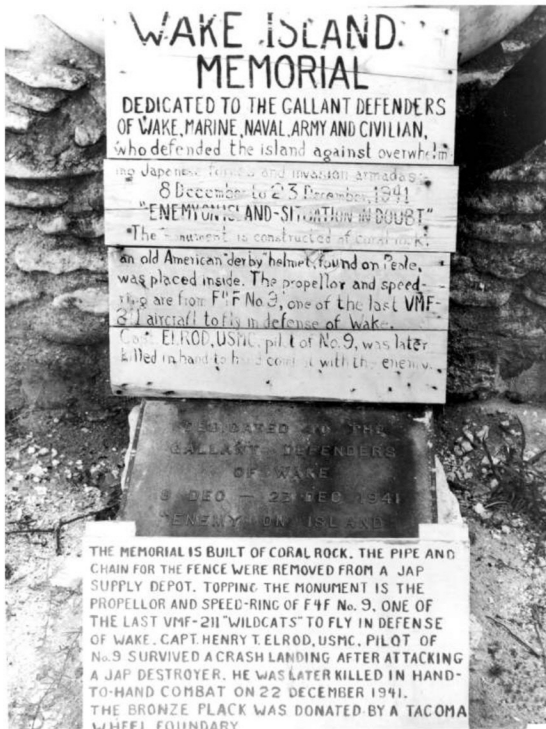 WAKE ISLAND
MEMORIAL
DEDICATED TO THE GALLANT DEFENDERS
OF WAKE, MARINE, NAVAL, ARMY AND CIVILIAN,
who defended the island against overwhelm-
ing Japanese forces and invasion armadas
8 December to 23 December, 1941
"ENEMY ON ISLAND-SITUATION IN DOUBT"
The monument is constructed of coral rock,
an old American "derby" helmet, found on Peale,
was placed inside. The propellor and speed-
ring are from F4F No. 9, one of the last VMF-
211 aircraft to fly in defense of Wake.
Capt. ELROD, USMC, pilot of No. 9, was later
killed in hand to hand combat with the enemy.
DEDICATED TO THE
GALLANT DEFENDERS
OF WAKE
8 DEC — 23 DEC 1941
"ENEMY ON ISLAND
THE MEMORIAL IS BUILT OF CORAL ROCK. THE PIPE AND
CHAIN FOR THE FENCE WERE REMOVED FROM A JAP
SUPPLY DEPOT. TOPPING THE MONUMENT IS THE
PROPELLOR AND SPEED-RING OF F4F No. 9, ONE OF
THE LAST VMF-211 "WILDCATS" TO FLY IN DEFENSE
OF WAKE. CAPT. HENRY T. ELROD, USMC, PILOT OF
No. 9 SURVIVED A CRASH LANDING AFTER ATTACKING
A JAP DESTROYER. HE WAS LATER KILLED IN HAND-
TO-HAND COMBAT ON 22 DECEMBER 1941.
THE BRONZE PLACK WAS DONATED BY A TACOMA
WHEEL FOUNDARY